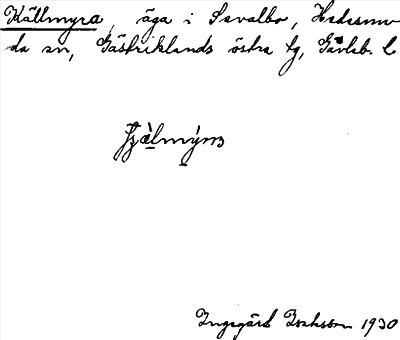 Källmyra, äga i Savalbo, Hedesun-
da sn, Gästriklands östra tg, Gävleb. l

Ingegärd Isaksson 1930